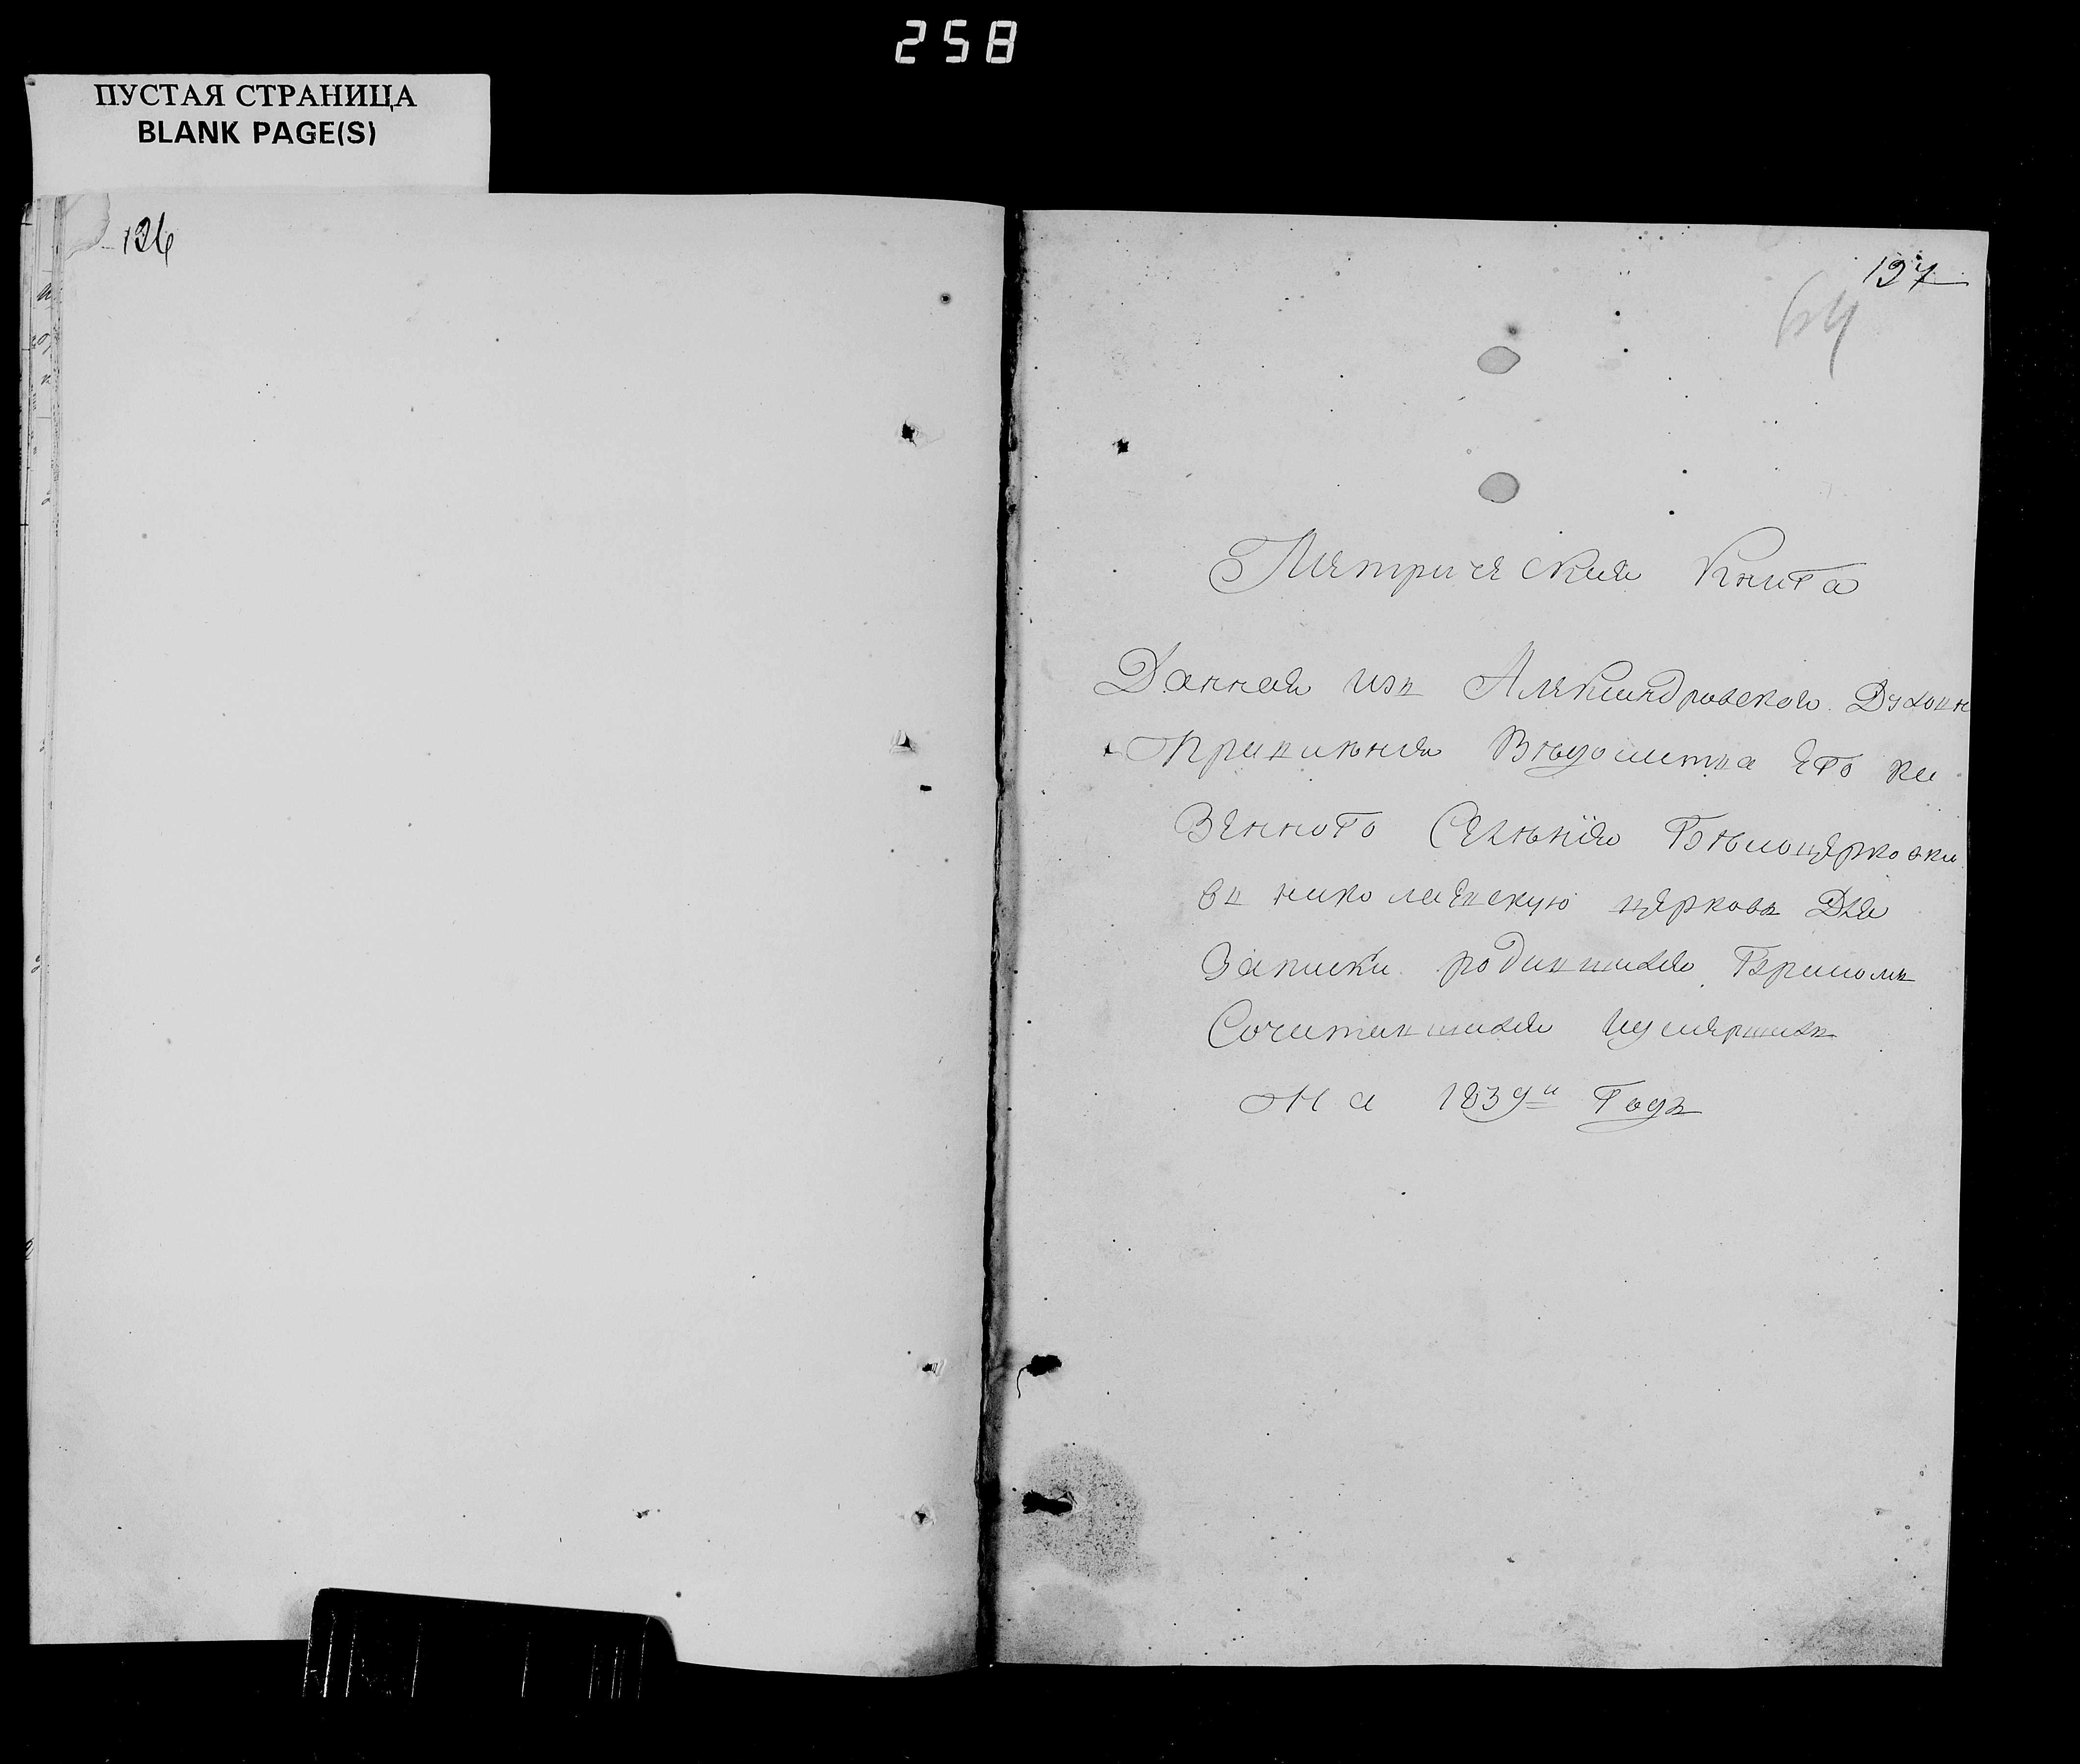 258
ПУСТАЯ СТРАНИЦА
BLANK PAGE(S)
126
127
64
Метрическая Книга
Данная изъ Александровского Духовн
правления Ведомства его ка
зенного Селѣнія Бѣлоцерковки
въ николаевскую церковь Для
Записки родившихся Бракомъ
Сочетавшихся иумершихъ
На 1839й Годъ